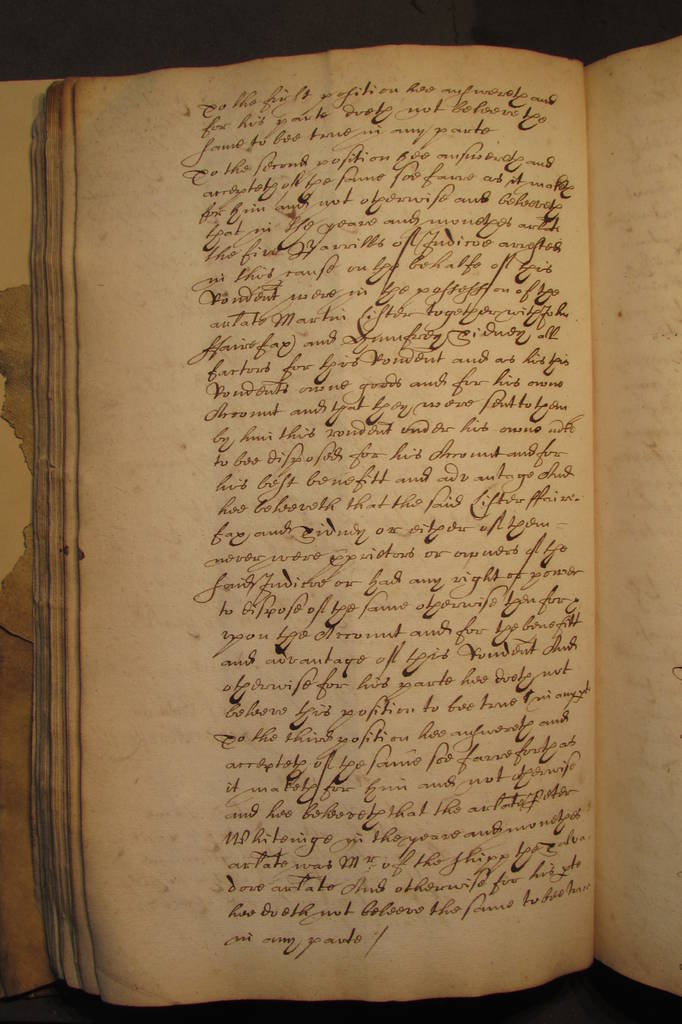 To the first position hee answereth and
for his parte doeth not beleeve the
same to bee true in any parte
To the second position hee answereth and
accepteth of the same soe farre as it maketh
for him and not otherwise and beleeveth
that in the yeare and monethes arlate
the five Barrills of Indicoe arrested
in this cause on the behalfe of this
Rondent were in the possession of the
arlate Martin Lister together with John
ffairefax and Humfrey Sidney all
factors for this Rondent and as his this
Rondents owne goods and for his owne
Account and that they were sent to them
by him this rondent under his owne
to bee disposed for his Account and for
his best benefitt and advantage And
hee beleeveth that the said Lister ffaire-
fax and Sidney or either of them
never were pprietors or owners of the
said Indicoe or had any right or power
to dispose of the same otherwise then for
upon the Account and for the benefitt
and advantage of this Rondent And
otherwise for his parte hee doeth not
beleeve this position to bee true in any pte
To the third position hee answereth and
accepteth of the same soe farre forth as
it maketh for him and not otherwise
and hee beleeveth that the arlate Peter
Whiteinge in the yeare and monethes
arlate was Mr. of the shipp the Salva-
dore arlate And otherwise for his pte
hee doeth not beleeve the same to bee true
in any parte /